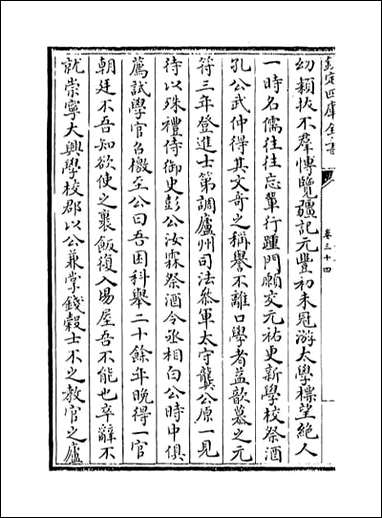 欽定四庫全書
卷三十四
幼頴拔不羣博覽彊記元豐初未冠游太學標望絶人
一時名儒往往忘單行踵門願交元祐更新學校祭酒
孔公武仲得其文奇之稱譽不離口學者益歆慕之元
符三年登進士第調廬州司法叅軍太守龔公原一見
待以殊禮侍御史彭公汝霖祭酒今丞相白公時中俱
薦試學官召檄至公曰吾困科舉二十餘年晚得一官
朝廷不吾知欲使之裹飯復入場屋吾不能也卒辭不
就崇寧大興學校郡以公兼掌錢糓士不之教官之廬